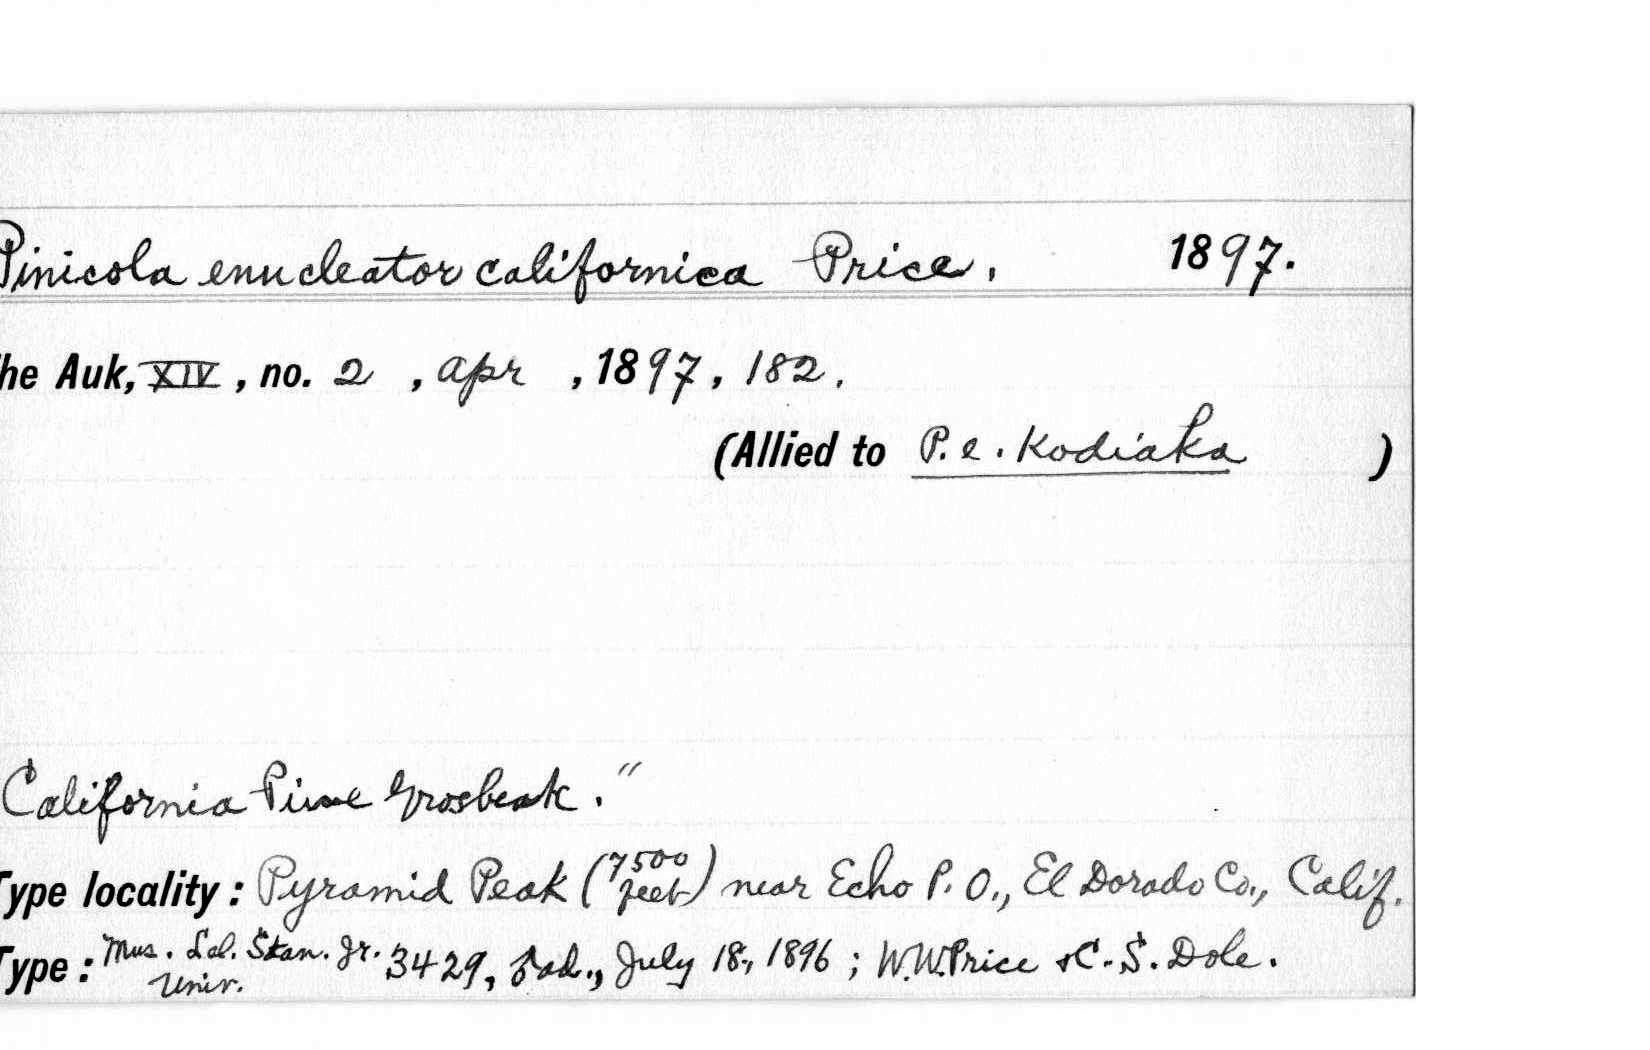 Pinicola enucleator californica Price. 1897.
he Auk, XIV, no. 2, Apr, 1897, 182.
(Allied to P. e. Kodiaka)
California Pine Grosbeak."
Type locality: Pyramid Peak (7500 feet) near Echo P. O., El Dorado Co., Calif.
Type: Mus. Lel. Stan. Jr. Univ. 3429, ad., July 18, 1896; W.W. Price & C. S. Dole.